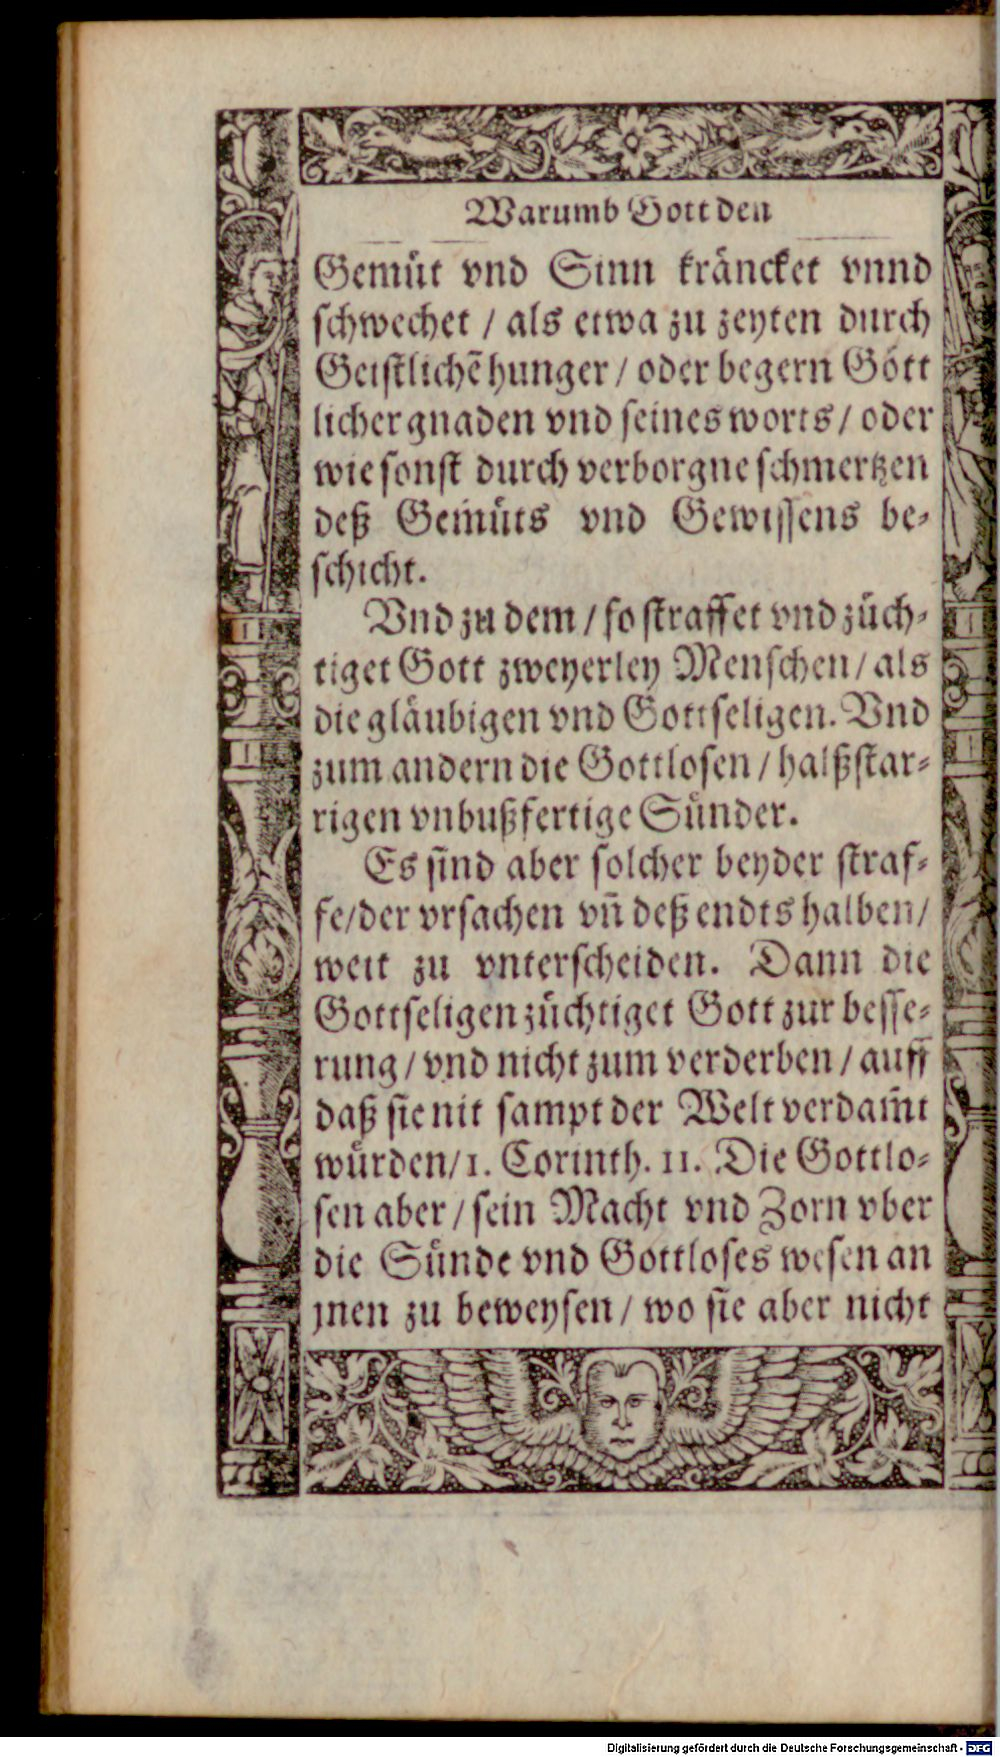 Warumb Gott den
Gemüt vnd Sinn kräncket vnnd
schwechet / als etwa zu zeyten durch
Geistlichẽ hunger / oder begern Gött
licher gnaden vnd seines worts / oder
wie sonst durch verborgne schmertzen
deß Gemüts vnd Gewissens be-
schicht.
Vnd zu dem / so straffet vnd züch-
tiget Gott zweyerley Menschen / als
die gläubigen vnd Gottseligen. Vnd
zum andern die Gottlosen / halßstar-
rigen vnbußfertige Sünder.
Es sind aber solcher beyder straf-
fe/der vrsachen vñ deß endts halben/
weit zu vnterscheiden. Dann die
Gottseligen züchtiget Gott zur besse-
rung / vnd nicht zum verderben / auff
daß sie nit sampt der Welt verdam̃t
würden/1. Corinth. 11. Die Gottlo-
sen aber / sein Macht vnd Zorn vber
die Sünde vnd Gottloses wesen an
jnen zu beweysen / wo sie aber nicht
Digitalisierung gefördert durch die Deutsche Forschungsgemeinschaft - DFG